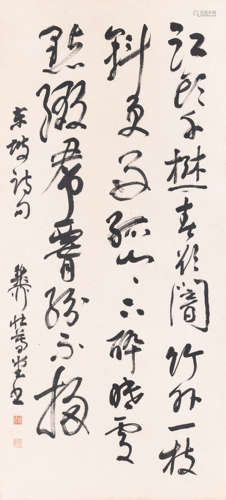 江頭千樹春欲闇竹外一枝
斜更好孤山々下醉眠處
點綴帬腰紛不掃
東坡詩句 謝